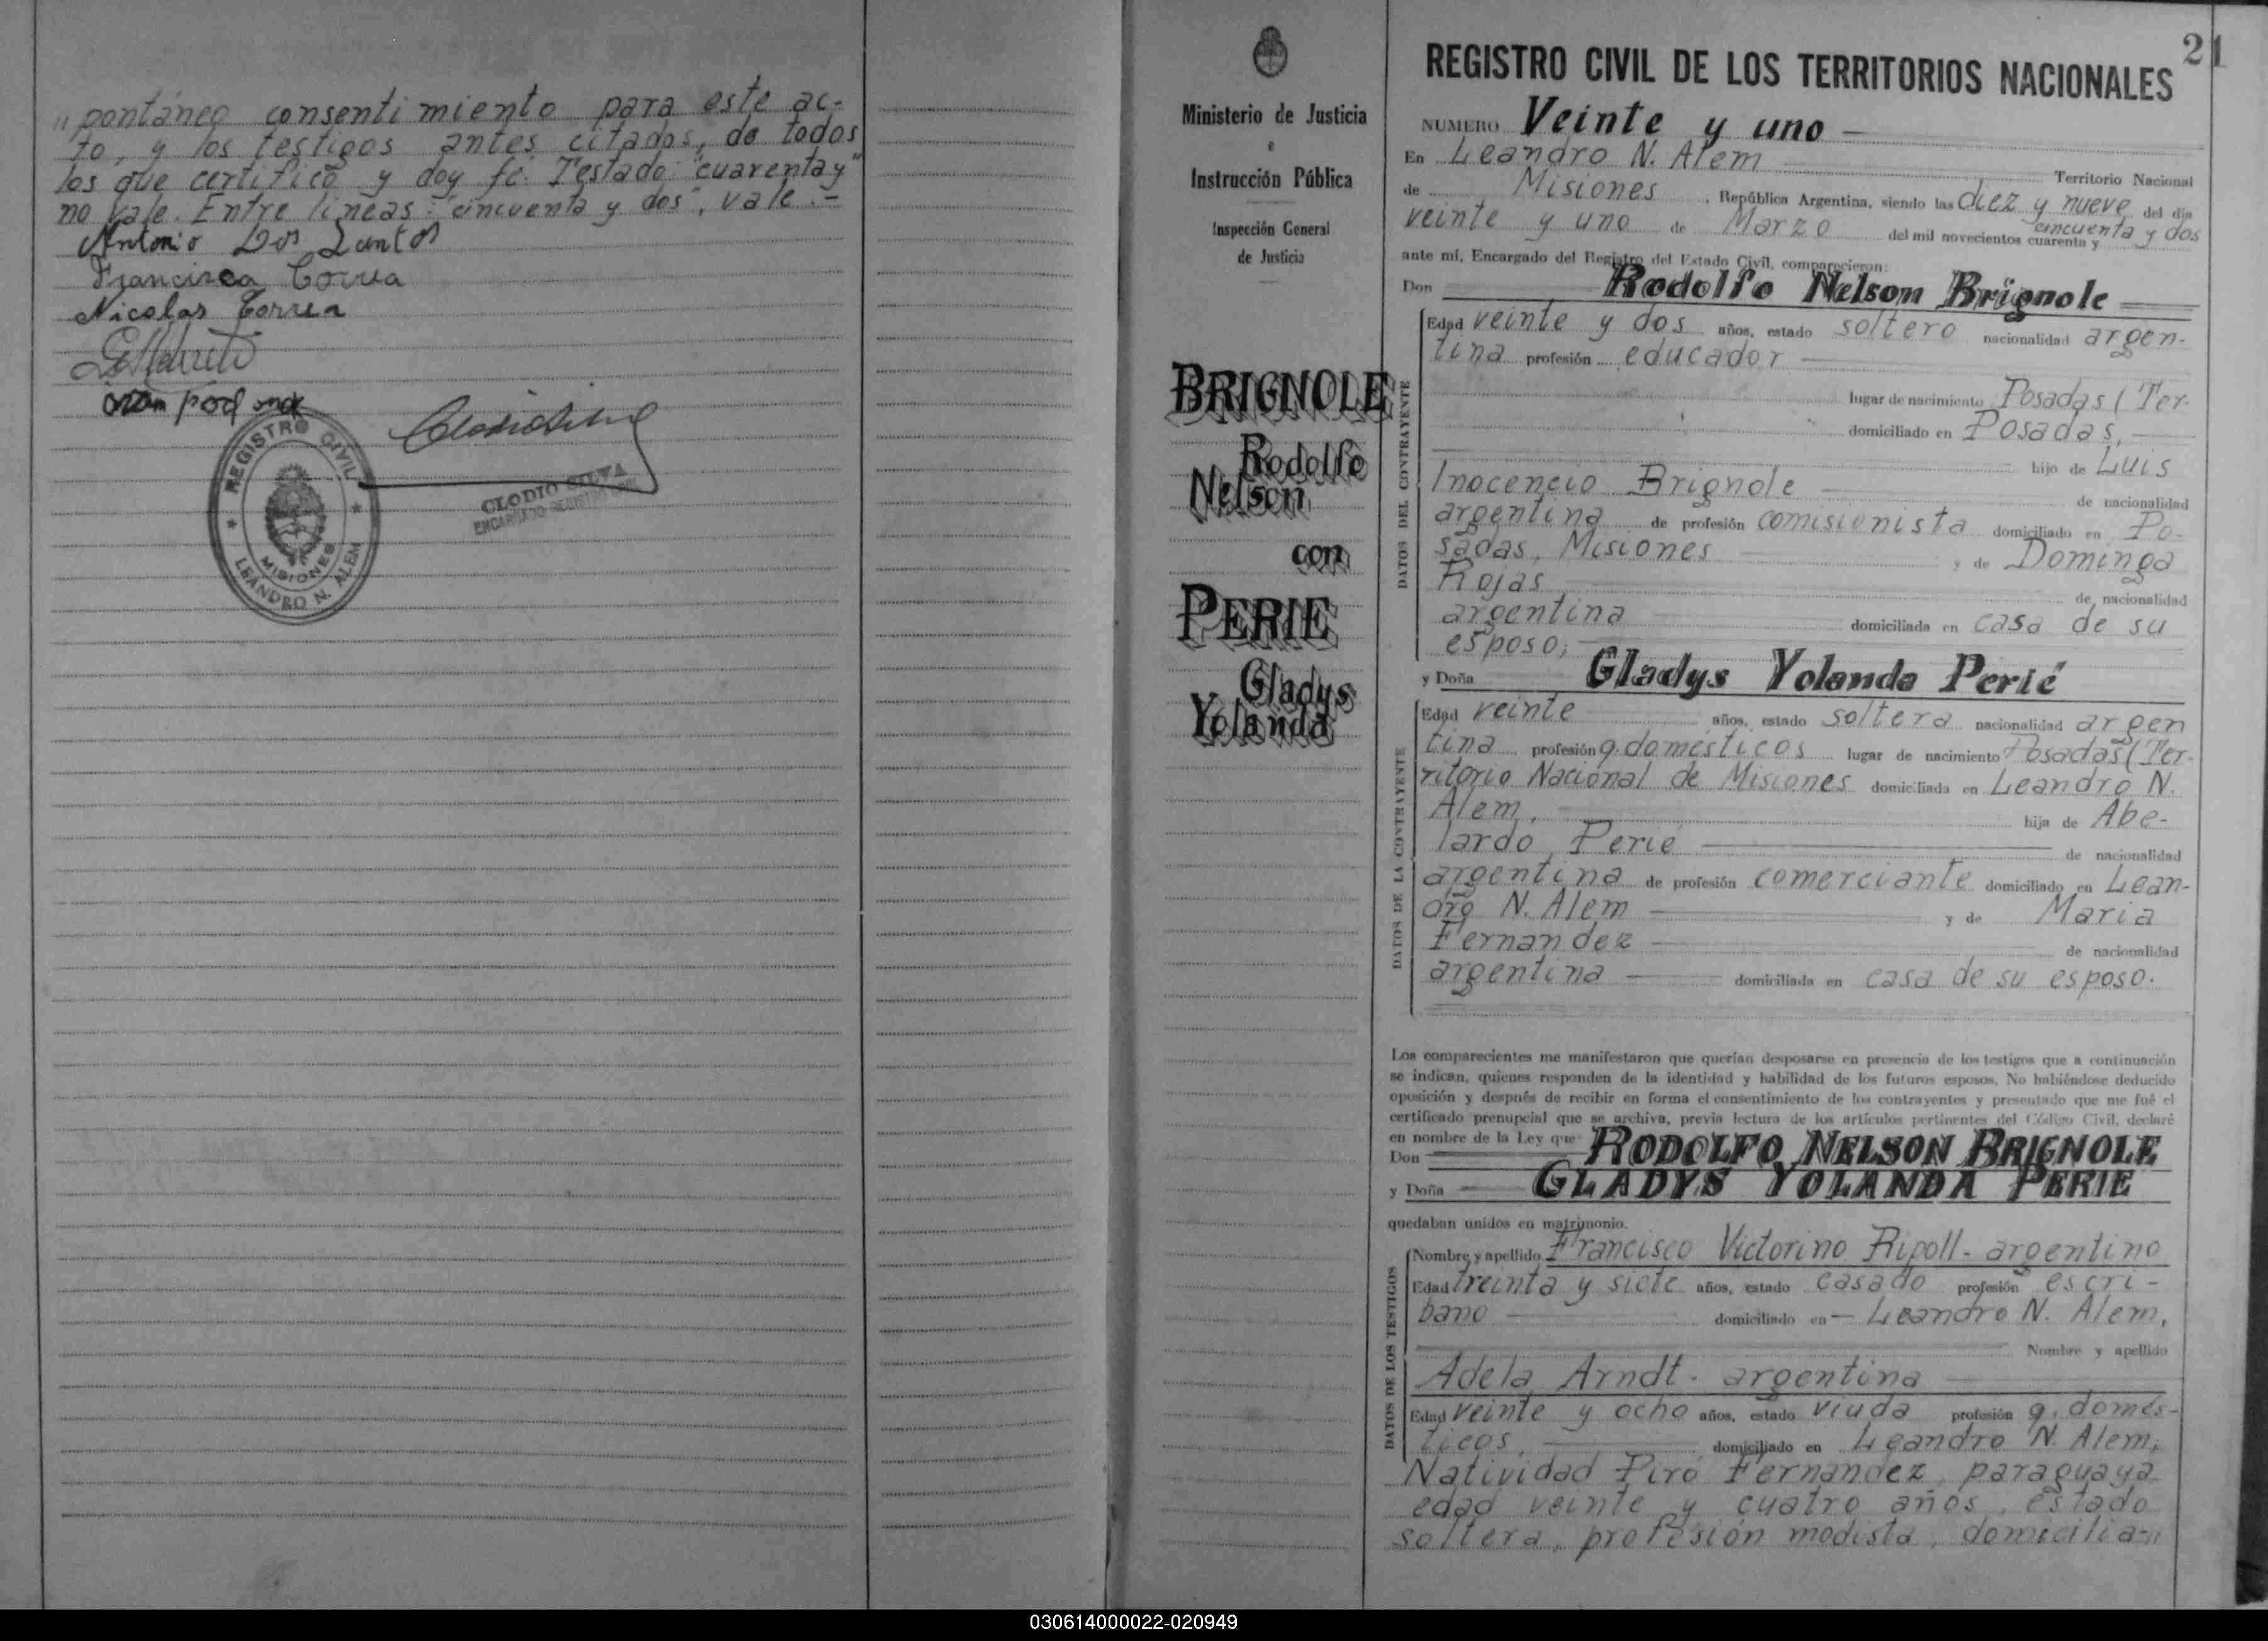 "pontáneo consentimiento para este ac-
to, y los testigos antes citados, de todos
los que certifico y doy fé. Testado: "cuarenta y"
no vale. Entre líneas: "cincuenta y dos", vale.-
Antonio Dos Santos
Francisca Correa
Nicolas Correa
REGISTRO CIVIL
MISIONES
LEANDRO N. ALEM
CLODIO SILVA
ENCARGADO REGISTRO CIVIL
Ministerio de Justicia
e
Instrucción Pública
Inspección General
de Justicia
BRIGNOLE
Rodolfo
Nelson
con
PERIE
Gladys
Yolanda
21
REGISTRO CIVIL DE LOS TERRITORIOS NACIONALES
NUMERO Veinte y uno
En Leandro N. Alem Territorio Nacional
de Misiones, República Argentina, siendo las diez y nueve del día
veinte y uno de Marzo del mil novecientos cuarenta y cincuenta y dos
ante mí, Encargado del Registro del Estado Civil, comparecieron:
Don Rodolfo Nelson Brignole
DATOS DEL CONTRAYENTE
Edad veinte y dos años, estado soltero nacionalidad argen-
tina profesión educador
lugar de nacimiento Posadas (Ter-
domiciliado en Posadas,
hijo de Luis
Inocencio Brignole de nacionalidad
argentina de profesión comisionista domiciliado en Po-
sadas, Misiones y de Dominga
Rojas de nacionalidad
argentina domiciliada en casa de su
esposo;
y Doña Gladys Yolanda Perié
DATOS DE LA CONTRAYENTE
Edad veinte años, estado soltera nacionalidad argen
tina profesión q. domésticos lugar de nacimiento Posadas (Ter-
ritorio Nacional de Misiones domiciliada en Leandro N.
Alem, hija de Abe-
lardo Perié de nacionalidad
argentina de profesión comerciante domiciliado en Lean-
dro N. Alem y de Maria
Fernandez de nacionalidad
argentina domiciliada en casa de su esposo.
Los comparecientes me manifestaron que querían desposarse en presencia de los testigos que a continuación
se indican, quienes responden de la identidad y habilidad de los futuros esposos. No habiéndose deducido
oposición y después de recibir en forma el consentimiento de los contrayentes y presentado que me fué el
certificado prenupcial que se archiva, previa lectura de los artículos pertinentes del Código Civil, declaré
en nombre de la Ley que:
Don RODOLFO NELSON BRIGNOLE
y Doña GLADYS YOLANDA PERIE
quedaban unidos en matrimonio.
DATOS DE LOS TESTIGOS
Nombre y apellido Francisco Victorino Ripoll- argentino
Edad treinta y siete años, estado casado profesión escri-
bano domiciliado en - Leandro N. Alem,
Nombre y apellido
Adela Arndt- argentina
Edad veinte y ocho años, estado viuda profesión q. domés-
ticos, domiciliado en Leandro N. Alem;
Natividad Piró Fernandez, paraguaya
edad veinte y cuatro años, estado
soltera, profesión modista, domicilia-"
030614000022-020949